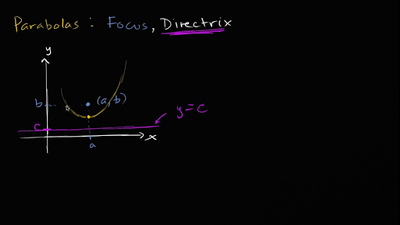 Parabolas : Focus, Directrix
y
b
(a,b)
y=c
c
x
a